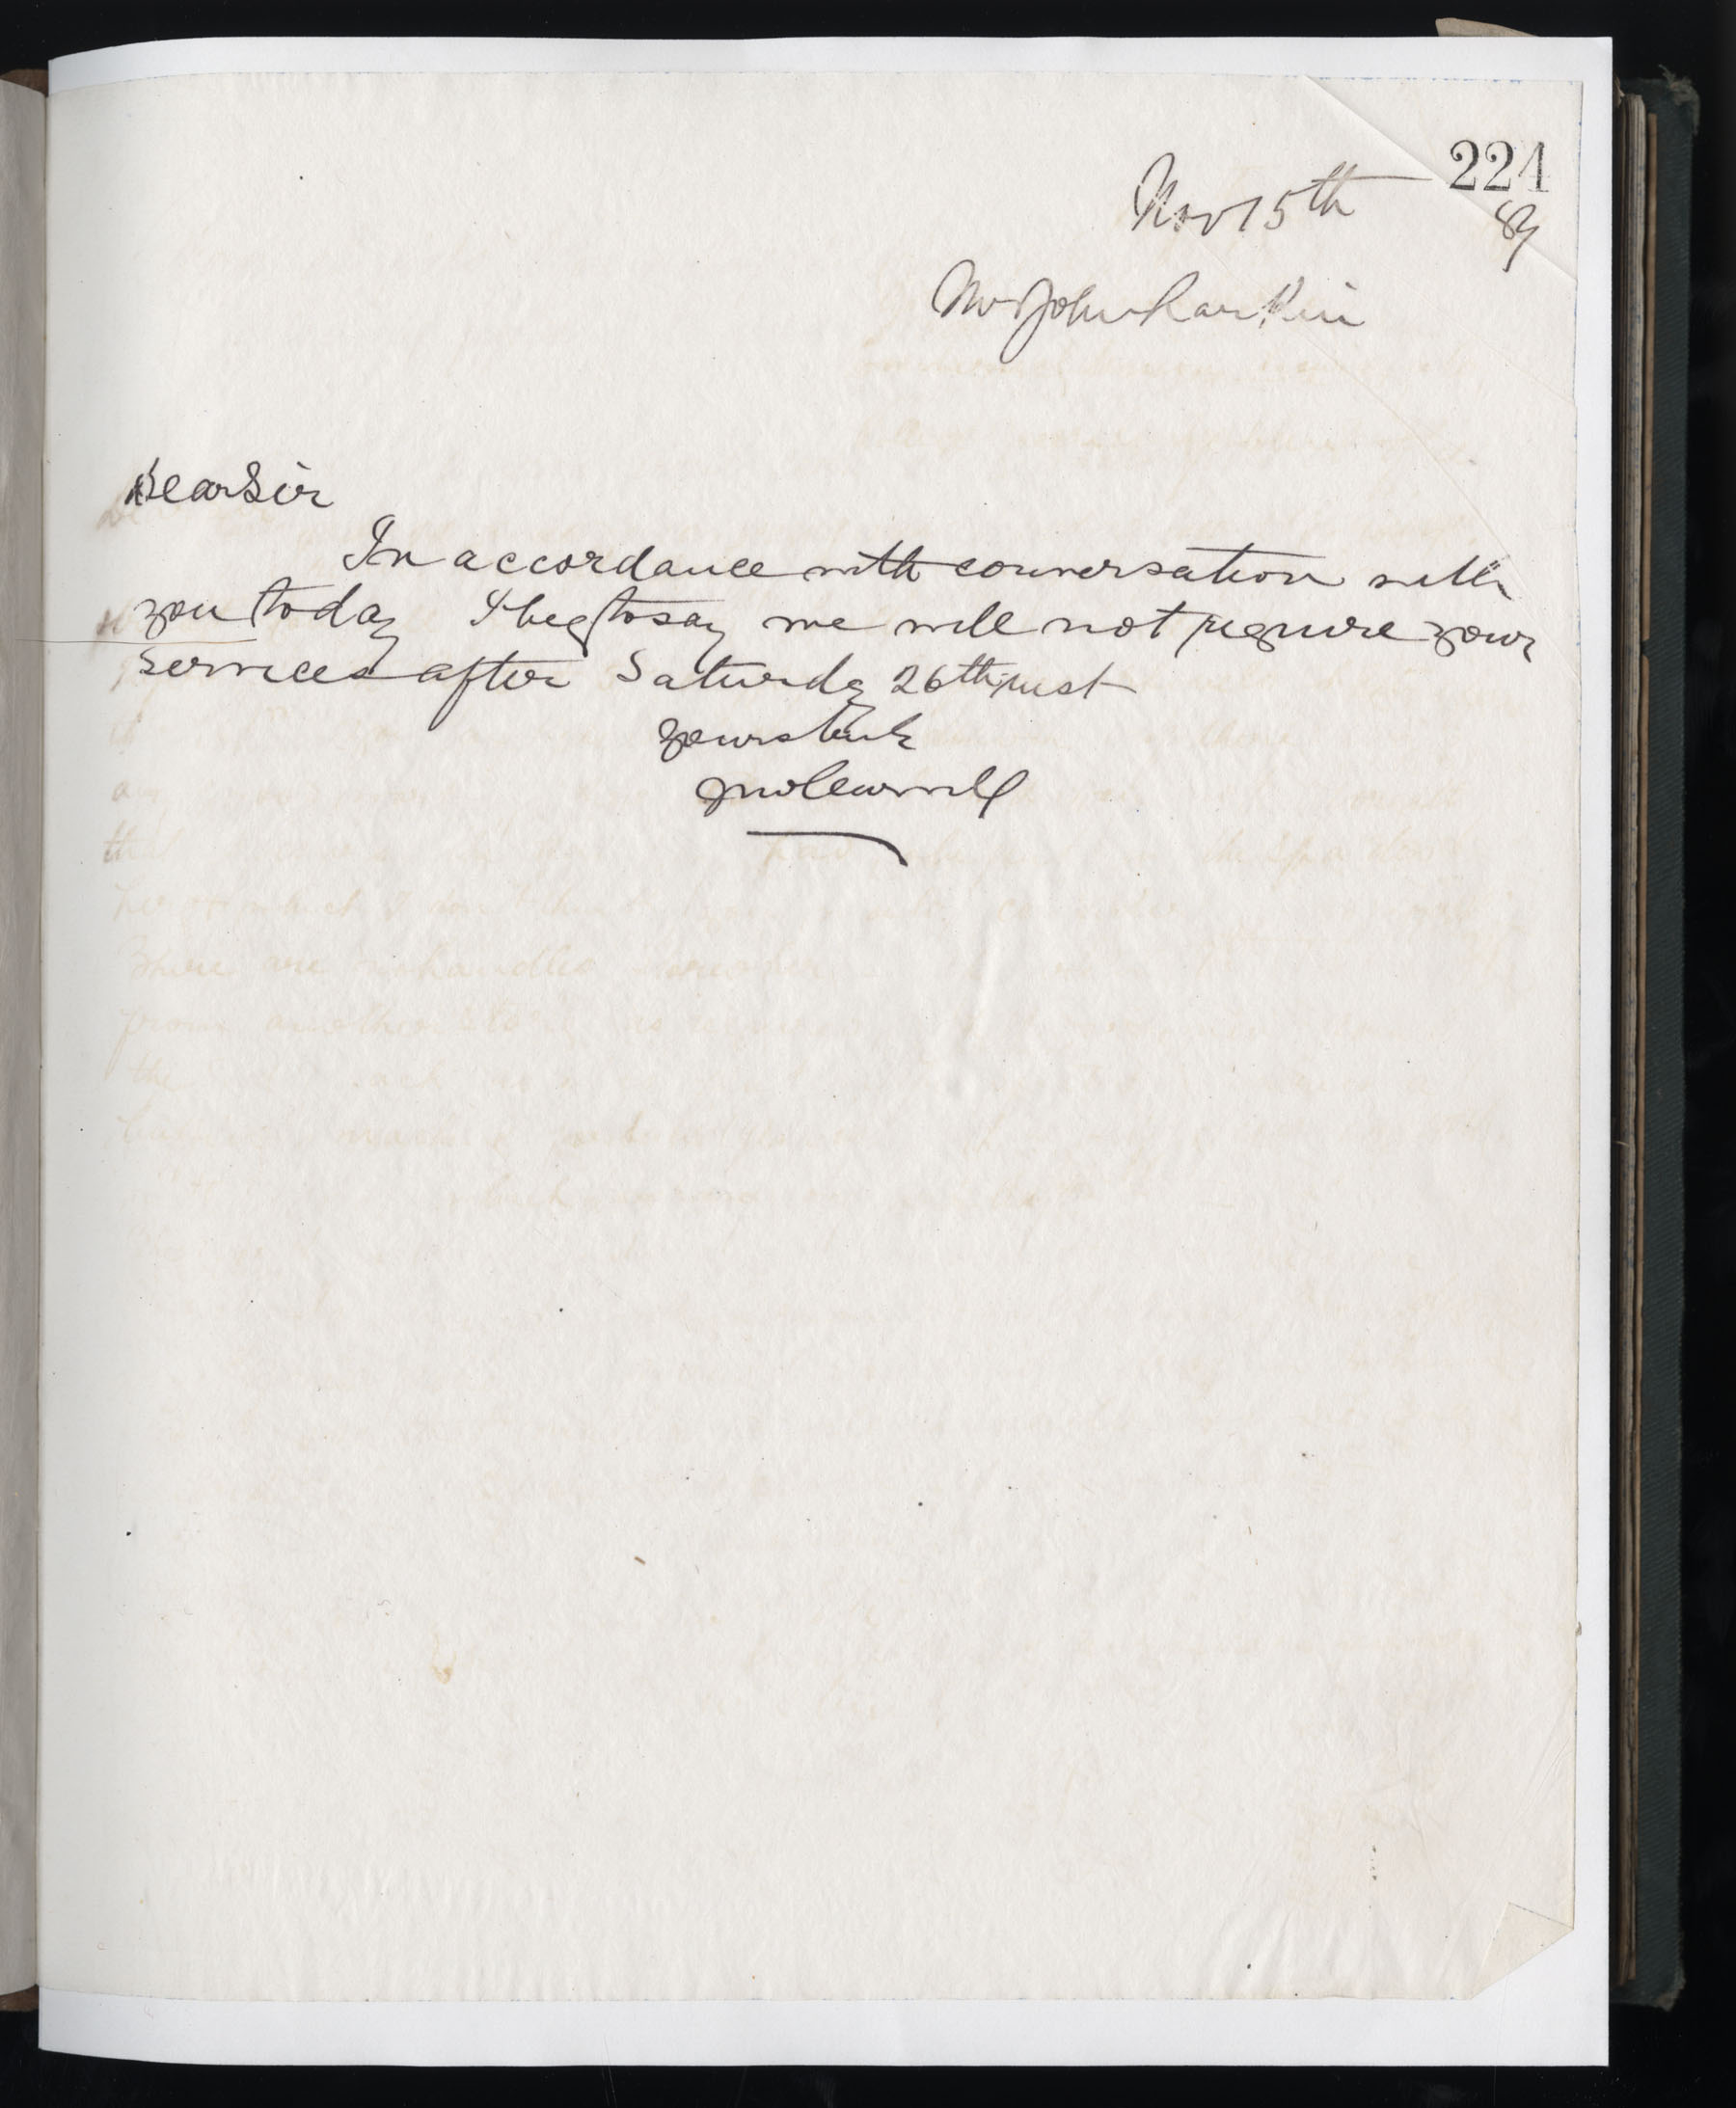 224
Nov 15th 87
Mr John Rankin
Dear Sir
In accordance with conversation with
you today I beg to say we will not require your
services after Saturday 26th inst
Yours truly